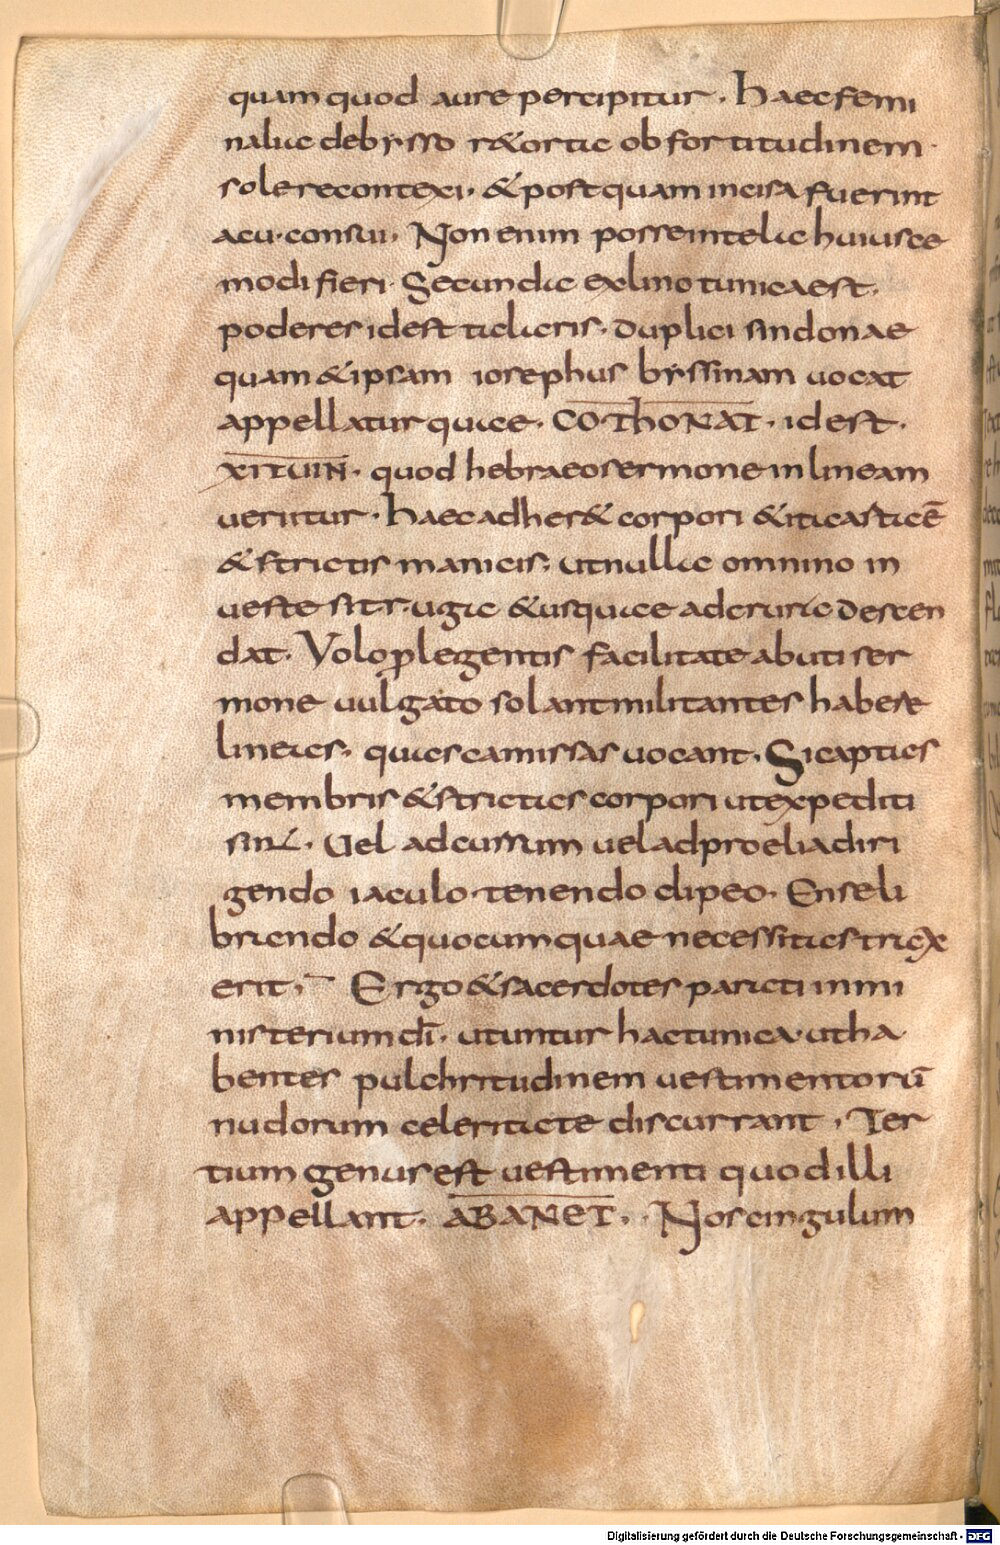 quam quod aure percipitur. Haec femi
nalia de bysso r&orta ob fortitudinem.
sole recontexi. & postquam incisa fuerint
acu. consui. Non enim posse in tela huiusce
modi fieri. Secunda ex lino tunica est.
poderes id est talaris. duplici sindonae
quam & ipsam iosephus byssinam uocat
appellaturquae. COTHONAT. id est.
XITUIN. quod hebraeo sermone in lineam
uertitur. haec adher& corpori & ita est arctā
& strictis manicis. ut nulla omnino in
ueste sit ruga & usquae ad crura descen
dat. Volo p legentis facilitate abuti ser
mone uulgato solant militantes habere
lineas. quas camissas uocant. Sic aptas
membris & strictas corpori ut expediti
sint. Uel ad cursum uel ad proelia diri
gendo iaculo. tenendo clipeo. Ense li
brando & quocumquae necessitas trax
erit, Ergo & sacerdotes parati in mi
nisterium dī. utuntur hac tunica. ut ha
bentes pulchritudinem uestimentorū
nudorum celeritate discurrant, Ter
tium genus est uestimenti quod illi
appellant. ABANET. Nos cingulum
Digitalisierung gefördert durch die Deutsche Forschungsgemeinschaft - DFG